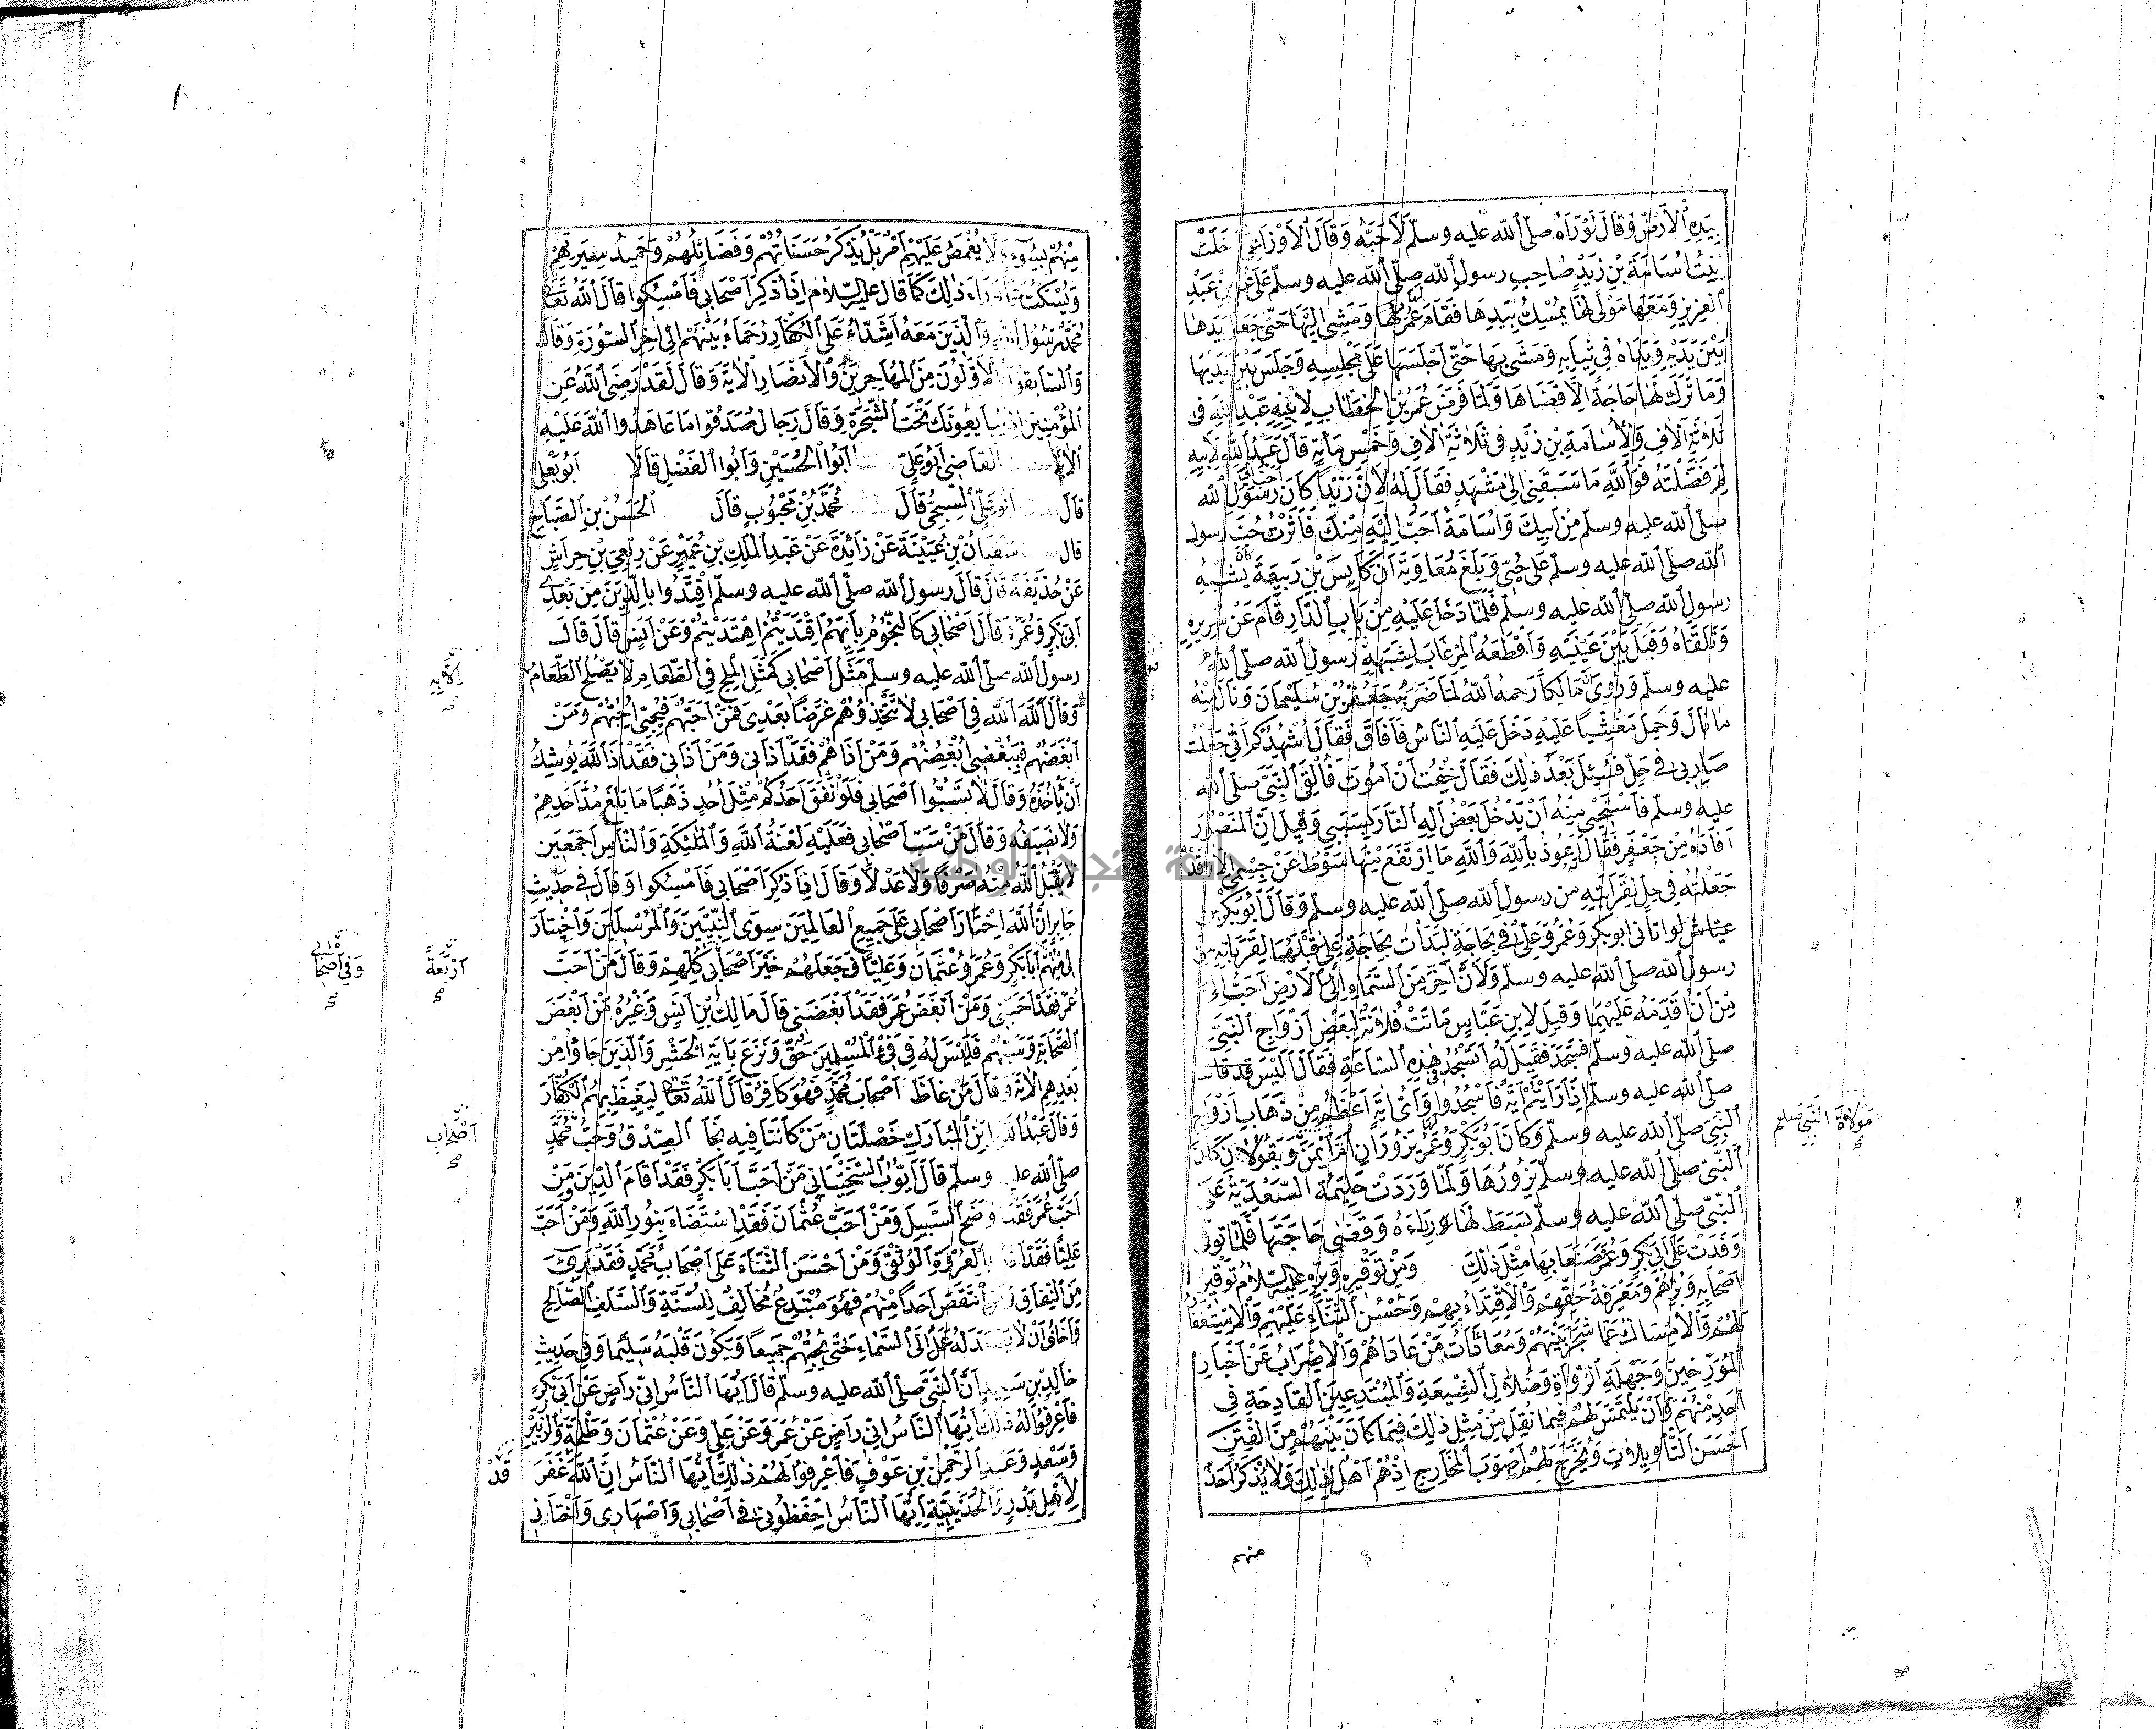 بِيَدِهِ الْاَرْضَ وَقَالَ لَوْ رَاٰهُ صلّى الله عليه وسلّم لَاَحَبَّهُ وَقَالَ الْاَوْزَاعِيُّ دَخَلَتْ
بِنْتُ اُسَامَةَ بْنِ زَيْدٍ صَاحِبِ رسول الله صلّى الله عليه وسلّم عَلٰى عُمَرَ بْنِ عَبْدِ
الْعَزِيزِ وَمَعَهَا مَوْلًى لَهَا يُمْسِكُ بِيَدِهَا فَقَامَ لَهَا عُمَرُ وَمَشٰى اِلَيْهَا حَتّٰى جَعَلَ يَدَهَا
بَيْنَ يَدَيْهِ وَيَدَاهُ فِي ثِيَابِهِ وَمَشٰى بِهَا حَتّٰى اَجْلَسَهَا عَلٰى مَجْلِسِهِ وَجَلَسَ بَيْنَ يَدَيْهَا
وَمَا تَرَكَ لَهَا حَاجَةً اِلَّا قَضَاهَا وَلَمَّا فَرَضَ عُمَرُ بْنُ الْخَطَّابِ لِابْنِهِ عَبْدِ اللّٰهِ فِى
ثَلَاثَةِ اٰلَافٍ وَلِاُسَامَةَ بْنِ زَيْدٍ فِى ثَلَاثَةِ اٰلَافٍ وَخَمْسِ مِائَةٍ قَالَ عَبْدُ اللّٰهِ لِاَبِيهِ
لِمَ فَضَّلْتَهُ فَوَاللّٰهِ مَا سَبَقَنِى اِلٰى مَشْهَدٍ فَقَالَ لَهُ لِاَنَّ زَيْدًا كَانَ اَحَبَّ اِلٰى رَسُولِ الله
صلّى الله عليه وسلّم مِنْ اَبِيكَ وَاُسَامَةُ اَحَبُّ اِلَيْهِ مِنْكَ فَاٰثَرْتُ حُبَّ رسول
الله صلّى الله عليه وسلّم عَلٰى حُبِّى وَبَلَغَ مُعَاوِيَةَ اَنَّ كَابِسَ بْنَ رَبِيعَةَ يُشْبِهُ
رسول الله صلّى الله عليه وسلّم فَلَمَّا دَخَلَ عَلَيْهِ مِنْ بَابِ الدَّارِ قَامَ عَنْ سَرِيرِهِ
وَتَلَقَّاهُ وَقَبَّلَ بَيْنَ عَيْنَيْهِ وَاَقْطَعَهُ الْمِرْغَابَ لِشَبَهِهِ رسول الله صلّى الله
عليه وسلّم وَرُوِىَ اَنَّ مَالِكًا رَحِمَهُ اللّٰهُ لَمَّا ضَرَبَهُ جَعْفَرُ بْنُ سُلَيْمَانَ وَنَالَ مِنْهُ
مَا نَالَ وَحُمِلَ مَغْشِيًّا عَلَيْهِ دَخَلَ عَلَيْهِ النَّاسُ فَاَفَاقَ فَقَالَ اُشْهِدُكُمْ اَنِّى جَعَلْتُ
ضَارِبِى فِى حِلٍّ فَسُئِلَ بَعْدَ ذٰلِكَ فَقَالَ خِفْتُ اَنْ اَمُوتَ فَاَلْقَى النَّبِىَّ صلّى الله
عليه وسلّم فَاَسْتَحْيِى مِنْهُ اَنْ يَدْخُلَ بَعْضُ اٰلِهِ النَّارَ بِسَبَبِى وَقِيلَ اِنَّ الْمَنْصُورَ
اَقَادَهُ مِنْ جَعْفَرٍ فَقَالَ اَعُوذُ بِاللّٰهِ وَاللّٰهِ مَا ارْتَفَعَ مِنْهَا سَوْطٌ عَنْ جِسْمِى اِلَّا وَقَدْ
جَعَلْتُهُ فِى حِلٍّ لِقَرَابَتِهِ مِنْ رسول الله صلّى الله عليه وسلّم وَقَالَ اَبُو بَكْرِ بْنُ
عَيَّاشٍ لَوْ اَتَانِى اَبُو بَكْرٍ وَعُمَرُ وَعَلِىٌّ فِى حَاجَةٍ لَبَدَاْتُ بِحَاجَةِ عَلِىٍّ قَبْلَهُمَا لِقَرَابَتِهِ مِنْ
رسول الله صلّى الله عليه وسلّم وَلَاَنْ اَخِرَّ مِنَ السَّمَاءِ اِلَى الْاَرْضِ اَحَبُّ اِلَىَّ
مِنْ اَنْ اُقَدِّمَهُ عَلَيْهِمَا وَقِيلَ لِابْنِ عَبَّاسٍ مَاتَتْ فُلَانَةُ لِبَعْضِ اَزْوَاجِ النَّبِىِّ
صلّى الله عليه وسلّم فَسَجَدَ فَقِيلَ لَهُ اَتَسْجُدُ فِى هٰذِهِ السَّاعَةِ فَقَالَ اَلَيْسَ قَدْ قَالَ
صلّى الله عليه وسلّم اِذَا رَاَيْتُمْ اٰيَةً فَاسْجُدُوا وَاَىُّ اٰيَةٍ اَعْظَمُ مِنْ ذَهَابِ اَزْوَاجِ
النَّبِىِّ صلّى الله عليه وسلّم وَكَانَ اَبُو بَكْرٍ وَعُمَرُ يَزُورَانِ اُمَّ اَيْمَنَ وَيَقُولَانِ كَانَ
مَوْلَاةَ النَّبِىِّ صلعم
النَّبِىُّ صلّى الله عليه وسلّم يَزُورُهَا وَلَمَّا وَرَدَتْ حَلِيمَةُ السَّعْدِيَّةُ عَلَى
النَّبِىِّ صلّى الله عليه وسلّم بَسَطَ لَهَا رِدَاءَهُ وَقَضٰى حَاجَتَهَا فَلَمَّا تُوُفِّىَ
وَفَدَتْ عَلٰى اَبِى بَكْرٍ وَعُمَرَ فَصَنَعَا بِهَا مِثْلَ ذٰلِكَ وَمِنْ تَوْقِيرِهِ وَبِرِّهِ عليه السّلام تَوْقِيرُ
اَصْحَابِهِ وَبِرُّهُمْ وَمَعْرِفَةُ حَقِّهِمْ وَالْاِقْتِدَاءُ بِهِمْ وَحُسْنُ الثَّنَاءِ عَلَيْهِمْ وَالْاِسْتِغْفَارُ
لَهُمْ وَالْاِمْسَاكُ عَمَّا شَجَرَ بَيْنَهُمْ وَمُعَادَاتُ مَنْ عَادَاهُمْ وَالْاِضْرَابُ عَنْ اَخْبَارِ
الْمُؤَرِّخِينَ وَجَهَلَةِ الرُّوَاةِ وَضُلَّالِ الشِّيعَةِ وَالْمُبْتَدِعِينَ الْقَادِحَةِ فِى
اَحَدٍ مِنْهُمْ وَاَنْ يُلْتَمَسَ لَهُمْ فِيمَا نُقِلَ مِنْ مِثْلِ ذٰلِكَ فِيمَا كَانَ بَيْنَهُمْ مِنَ الْفِتَنِ
اَحْسَنَ التَّاْوِيلَاتِ وَيُخَرَّجَ لَهُمْ اَصْوَبَ الْمَخَارِجِ اِذْ هُمْ اَهْلٌ لِذٰلِكَ وَلَا يُذْكَرَ اَحَدٌ
منهم
مِنْهُمْ بِسُوءٍ وَلَا يُغْمَصُ عَلَيْهِ اَمْرٌ بَلْ يُذْكَرُ حَسَنَاتُهُمْ وَفَضَائِلُهُمْ وَحَمِيدُ سِيَرِهِمْ
وَيُسْكَتُ عَمَّا وَرَاءَ ذٰلِكَ كَمَا قَالَ عليه السّلام اِذَا ذُكِرَ اَصْحَابِى فَاَمْسِكُوا قَالَ اللّٰهُ تَعَالٰى
مُحَمَّدٌ رَسُولُ اللّٰهِ وَالَّذِينَ مَعَهُ اَشِدَّاءُ عَلَى الْكُفَّارِ رُحَمَاءُ بَيْنَهُمْ اِلٰى اٰخِرِ السُّورَةِ وَقَالَ
وَالسَّابِقُونَ الْاَوَّلُونَ مِنَ الْمُهَاجِرِينَ وَالْاَنْصَارِ الْاٰيَةَ وَقَالَ لَقَدْ رَضِىَ اللّٰهُ عَنِ
الْمُؤْمِنِينَ اِذْ يُبَايِعُونَكَ تَحْتَ الشَّجَرَةِ وَقَالَ رِجَالٌ صَدَقُوا مَا عَاهَدُوا اللّٰهَ عَلَيْهِ
الْاٰيَةَ الْقَاضِى اَبُو عَلِىٍّ اَبُوا الْحُسَيْنِ وَاَبُوا الْفَضْلِ قَالَا اَبُو يَعْلٰى
قَالَ اَبُو عَلِىٍّ السِّنْجِىُّ قَالَ مُحَمَّدُ بْنُ مَحْبُوبٍ قَالَ الْحَسَنُ بْنُ الصَّبَّاحِ
قال سُفْيَانُ بْنُ عُيَيْنَةَ عَنْ زَائِدَةَ عَنْ عَبْدِ الْمَلِكِ بْنِ عُمَيْرٍ عَنْ رِبْعِىِّ بْنِ حِرَاشٍ
عَنْ حُذَيْفَةَ قَالَ قَالَ رسول الله صلّى الله عليه وسلّم اقْتَدُوا بِاللَّذَيْنِ مِنْ بَعْدِى
اَبِى بَكْرٍ وَعُمَرَ وَقَالَ اَصْحَابِى كَالنُّجُومِ بِاَيِّهِمُ اقْتَدَيْتُمُ اهْتَدَيْتُمْ وَعَنْ اَنَسٍ قَالَ قَالَ
رسول الله صلّى الله عليه وسلّم مَثَلُ اَصْحَابِى كَمَثَلِ الْمِلْحِ فِى الطَّعَامِ لَا يَصْلُحُ الطَّعَامُ
اِلَّا بِهِ
وَقَالَ اللّٰهَ اللّٰهَ فِى اَصْحَابِى لَا تَتَّخِذُوهُمْ غَرَضًا بَعْدِى فَمَنْ اَحَبَّهُمْ فَبِحُبِّى اَحَبَّهُمْ وَمَنْ
اَبْغَضَهُمْ فَبِبُغْضِى اَبْغَضَهُمْ وَمَنْ اٰذَاهُمْ فَقَدْ اٰذَانِى وَمَنْ اٰذَانِى فَقَدْ اٰذَى اللّٰهَ يُوشِكُ
اَنْ يَاْخُذَهُ وَقَالَ لَا تَسُبُّوا اَصْحَابِى فَلَوْ اَنْفَقَ اَحَدُكُمْ مِثْلَ اُحُدٍ ذَهَبًا مَا بَلَغَ مُدَّ اَحَدِهِمْ
وَلَا نَصِيفَهُ وَقَالَ مَنْ سَبَّ اَصْحَابِى فَعَلَيْهِ لَعْنَةُ اللّٰهِ وَالْمَلٰئِكَةِ وَالنَّاسِ اَجْمَعِينَ
لَا يَقْبَلُ اللّٰهُ مِنْهُ صَرْفًا وَلَا عَدْلًا وَقَالَ اِذَا ذُكِرَ اَصْحَابِى فَاَمْسِكُوا وَقَالَ فِى حَدِيثِ
جَابِرٍ اِنَّ اللّٰهَ اخْتَارَ اَصْحَابِى عَلٰى جَمِيعِ الْعَالَمِينَ سِوَى النَّبِيِّينَ وَالْمُرْسَلِينَ وَاخْتَارَ
لِى مِنْهُمْ اَبَا بَكْرٍ وَعُمَرَ وَعُثْمَانَ وَعَلِيًّا فَجَعَلَهُمْ خَيْرَ اَصْحَابِى كُلِّهِمْ وَقَالَ مَنْ اَحَبَّ
اَرْبَعَةً
وَفِى اَصْحَابِى
عُمَرَ فَقَدْ اَحَبَّنِى وَمَنْ اَبْغَضَ عُمَرَ فَقَدْ اَبْغَضَنِى قَالَ مَالِكُ بْنُ اَنَسٍ وَغَيْرُهُ مَنْ اَبْغَضَ
الصَّحَابَةَ وَسَبَّهُمْ فَلَيْسَ لَهُ فِى فَىْءِ الْمُسْلِمِينَ حَقٌّ وَنَزَعَ بِاٰيَةِ الْحَشْرِ وَالَّذِينَ جَاؤُا مِنْ
بَعْدِهِمْ الْاٰيَةَ وَقَالَ مَنْ غَاظَ اَصْحَابَ مُحَمَّدٍ فَهُوَ كَافِرٌ قَالَ اللّٰهُ تَعَالٰى لِيَغِيظَ بِهِمُ الْكُفَّارَ
اَصْحَاب
وَقَالَ عَبْدُ اللّٰهِ ابْنُ الْمُبَارَكِ خَصْلَتَانِ مَنْ كَانَتَا فِيهِ نَجَا الصِّدْقُ وَحُبُّ مُحَمَّدٍ
صلّى الله عليه وسلّم قَالَ اَيُّوبُ السَّخْتِيَانِى مَنْ اَحَبَّ اَبَا بَكْرٍ فَقَدْ اَقَامَ الدِّينَ وَمَنْ
اَحَبَّ عُمَرَ فَقَدْ اَوْضَحَ السَّبِيلَ وَمَنْ اَحَبَّ عُثْمَانَ فَقَدِ اسْتَضَاءَ بِنُورِ اللّٰهِ وَمَنْ اَحَبَّ
عَلِيًّا فَقَدْ اَخَذَ بِالْعُرْوَةِ الْوُثْقٰى وَمَنْ اَحْسَنَ الثَّنَاءَ عَلٰى اَصْحَابِ مُحَمَّدٍ فَقَدْ بَرِئَ
مِنَ النِّفَاقِ وَمَنِ انْتَقَصَ اَحَدًا مِنْهُمْ فَهُوَ مُبْتَدِعٌ مُخَالِفٌ لِلسُّنَّةِ وَالسَّلَفِ الصَّالِحِ
وَاَخَافُ اَنْ لَا يَصْعَدَ لَهُ عَمَلٌ اِلَى السَّمَاءِ حَتّٰى يُحِبَّهُمْ جَمِيعًا وَيَكُونَ قَلْبُهُ سَلِيمًا وَفِى حَدِيثِ
خَالِدِ بْنِ سَعِيدٍ اَنَّ النَّبِىَّ صلّى الله عليه وسلّم قَالَ اَيُّهَا النَّاسُ اِنِّى رَاضٍ عَنْ اَبِى بَكْرٍ
فَاعْرِفُوا لَهُ ذٰلِكَ اَيُّهَا النَّاسُ اِنِّى رَاضٍ عَنْ عُمَرَ وَعَنْ عَلِىٍّ وَعَنْ عُثْمَانَ وَطَلْحَةَ وَالزُّبَيْرِ
وَسَعْدٍ وَعَبْدِ الرَّحْمٰنِ بْنِ عَوْفٍ فَاعْرِفُوا لَهُمْ ذٰلِكَ اَيُّهَا النَّاسُ اِنَّ اللّٰهَ غَفَرَ
قَدْ
لِاَهْلِ بَدْرٍ وَالْحُدَيْبِيَةِ اَيُّهَا النَّاسُ احْفَظُونِى فِى اَصْحَابِى وَاَصْهَارِى وَاَخْتَانِى